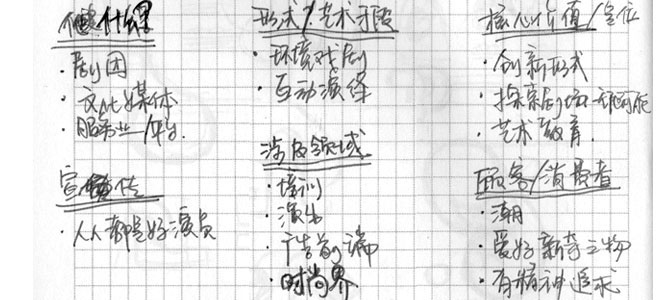 剧团
文化媒体
服务业/平台
宣传
人人都是好演员
形式/艺术手段
环境戏剧
互动演绎
涉及领域
培训
演出
广告前端
时尚界
核心价值/定位
创新形式
探索剧场
艺术教育
顾客/消费者
潮
爱好新奇之物
有精神追求